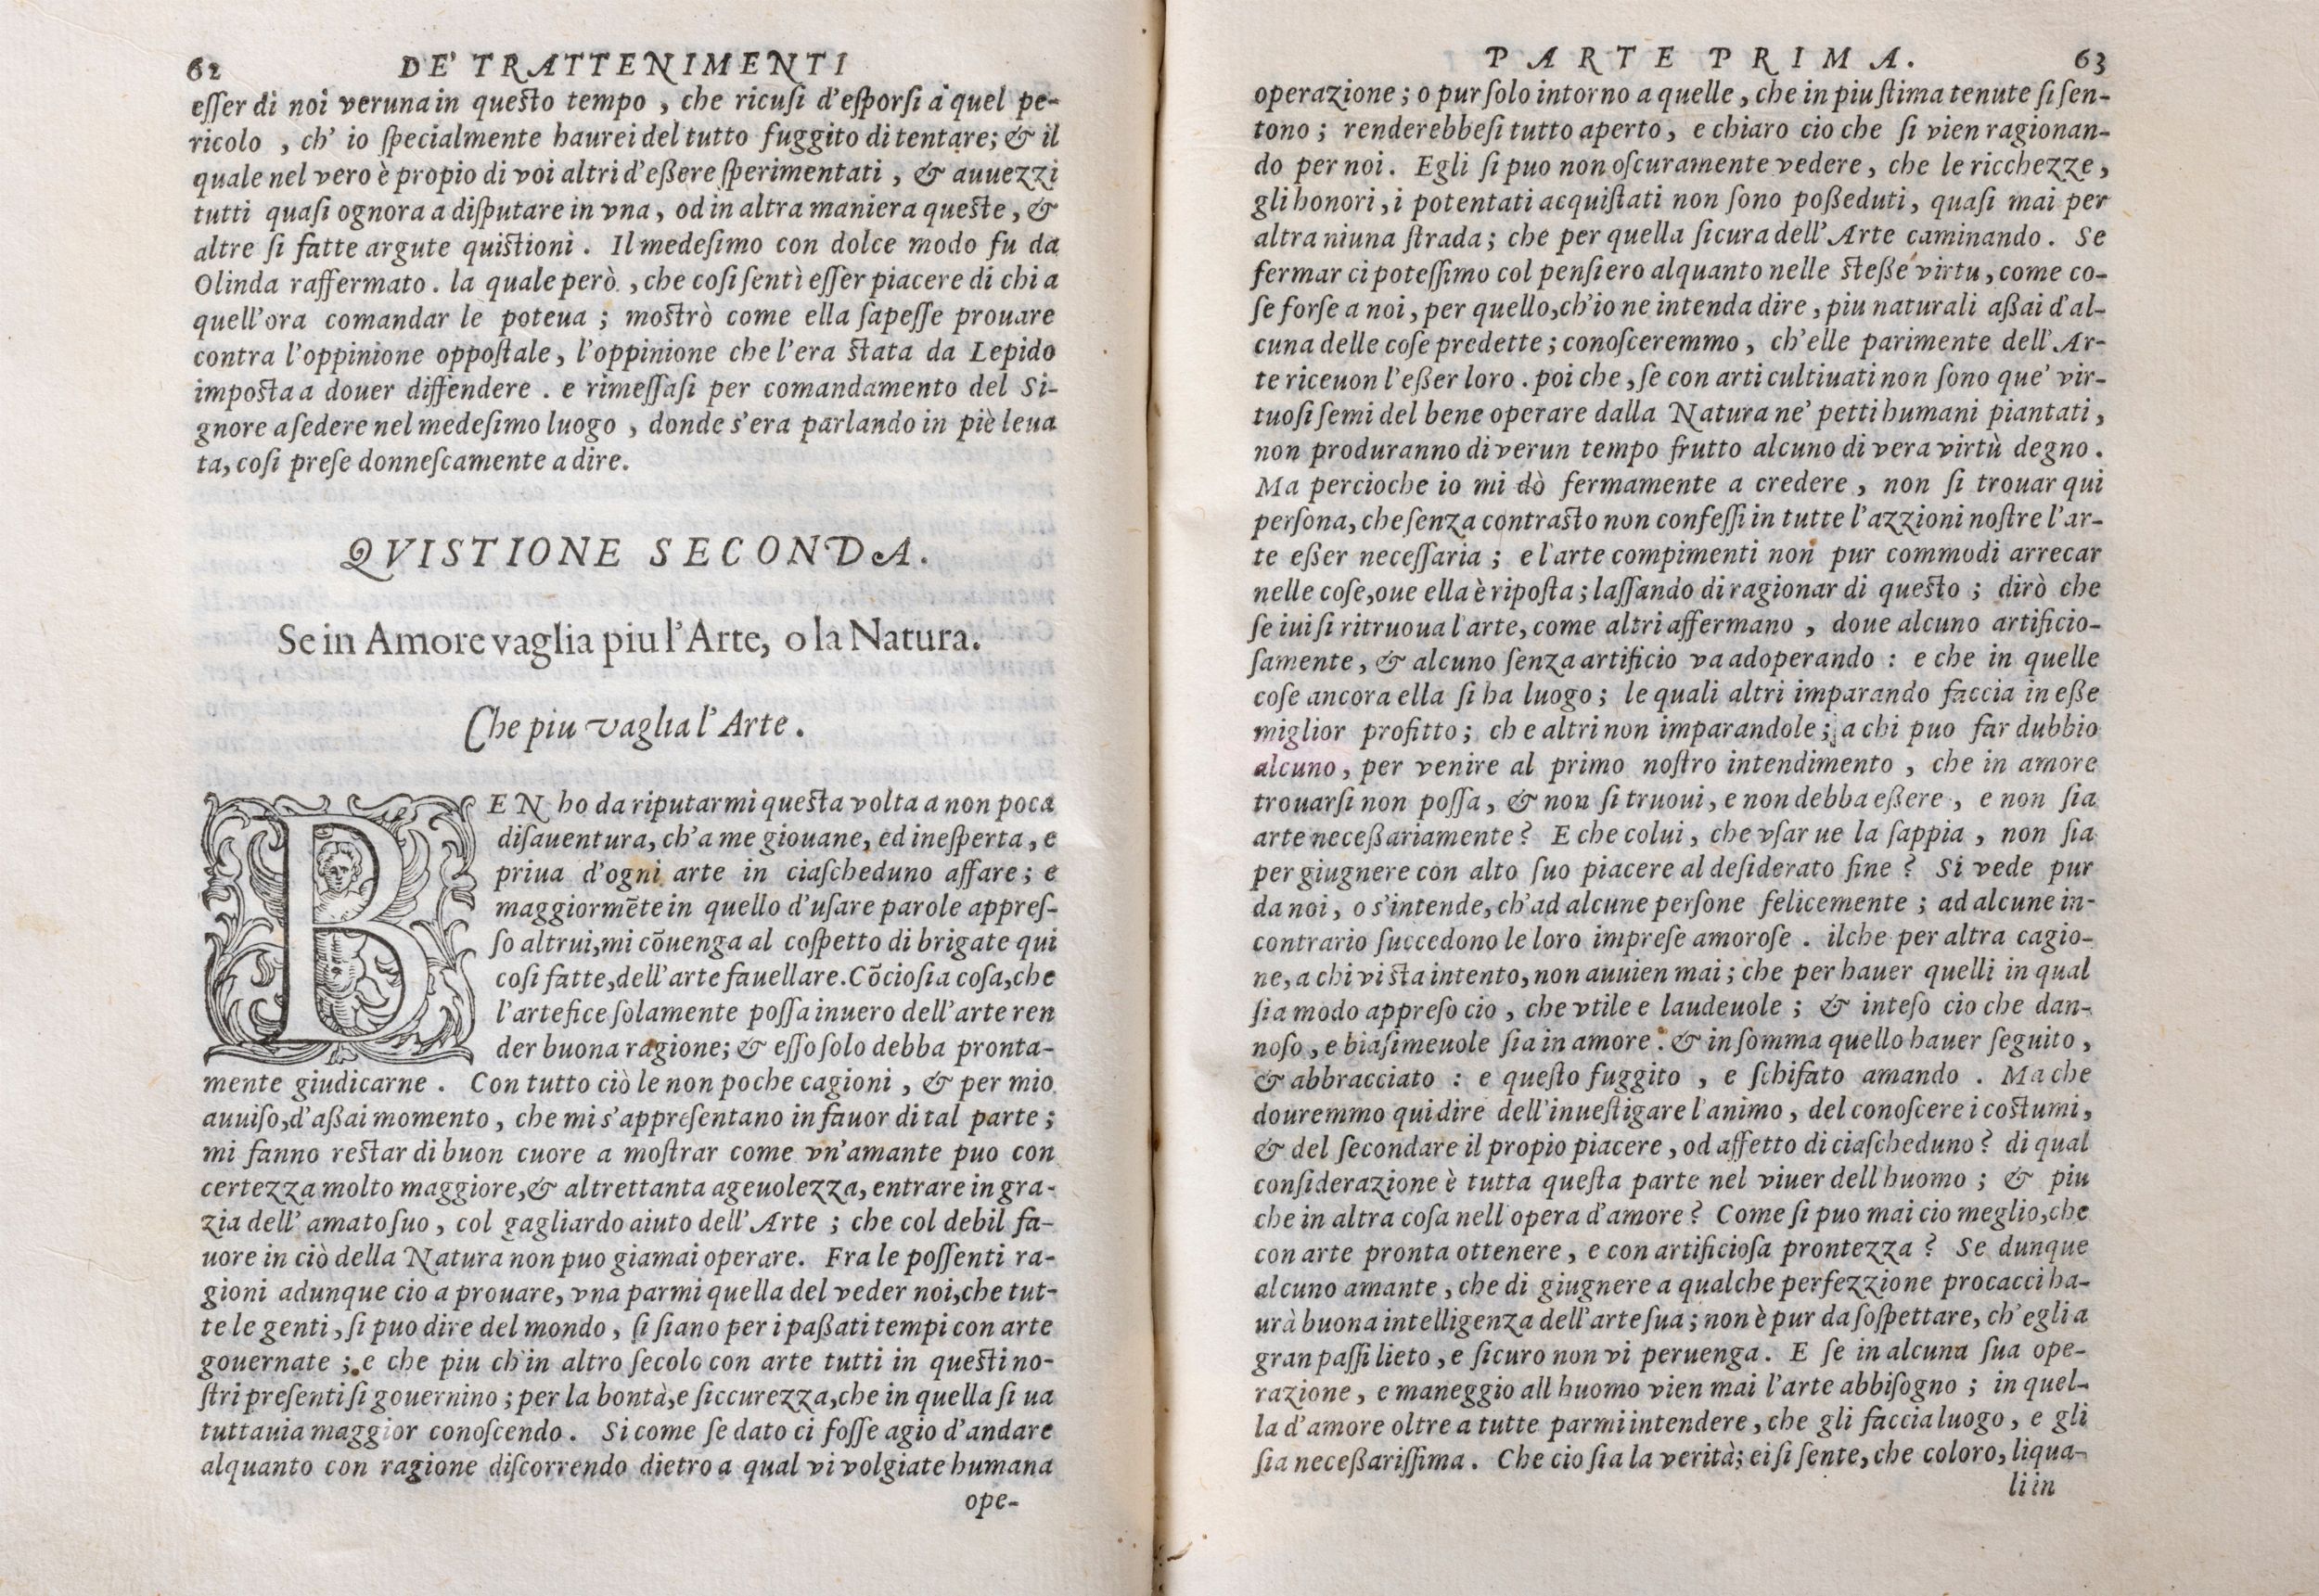 62 DE' TRATTENIMENTI
eſſer di noi veruna in questo tempo, che ricuſi d'eſporſi a quel pe-
ricolo, ch' io ſpecialmente haurei del tutto fuggito di tentare; & il
quale nel vero è propio di voi altri d'eßere ſperimentati, & auuezzi
tutti quaſi ognora a diſputare in vna, od in altra maniera queste, &
altre ſi fatte argute quistioni. Il medeſimo con dolce modo fu da
Olinda raffermato. la quale però, che coſi ſentì eſſer piacere di chi a
quell'ora comandar le poteua; mostrò come ella ſapeſſe prouare
contra l'oppinione oppoſtale, l'oppinione che l'era stata da Lepido
imposta a douer diffendere. e rimeſſaſi per comandamento del Si-
gnore a ſedere nel medeſimo luogo, donde s'era parlando in piè leua
ta, coſi preſe donneſcamente a dire.
QVISTIONE SECONDA.
Se in Amore vaglia piu l'Arte, o la Natura.
Che piu vaglia l'Arte.
BEN ho da riputarmi questa volta a non poca
diſauentura, ch'a me giouane, ed ineſperta, e
priua d'ogni arte in ciaſcheduno affare; e
maggiormēte in quello d'uſare parole appreſ-
ſo altrui, mi cōuenga al coſpetto di brigate qui
coſi fatte, dell'arte fauellare. Cōcioſia coſa, che
l'artefice ſolamente poſſa inuero dell'arte ren
der buona ragione; & eſſo ſolo debba pronta-
mente giudicarne. Con tutto ciò le non poche cagioni, & per mio
auuiſo, d'aßai momento, che mi s'appreſentano in fauor di tal parte;
mi fanno restar di buon cuore a moſtrar come vn'amante puo con
certezza molto maggiore, & altrettanta ageuolezza, entrare in gra-
zia dell'amato ſuo, col gagliardo aiuto dell'Arte; che col debil fa-
uore in ciò della Natura non puo giamai operare. Fra le poſſenti ra-
gioni adunque cio a prouare, vna parmi quella del veder noi, che tut-
te le genti, ſi puo dire del mondo, ſi ſiano per i paßati tempi con arte
gouernate; e che piu ch'in altro ſecolo con arte tutti in questi no-
ſtri preſenti ſi gouernino; per la bontà, e ſiccurezza, che in quella ſi ua
tuttauia maggior conoſcendo. Si come ſe dato ci foſſe agio d'andare
alquanto con ragione diſcorrendo dietro a qual vi volgiate humana
ope-
PARTE PRIMA. 63
operazione; o pur ſolo intorno a quelle, che in piu ſtima tenute ſi ſen-
tono; renderebbeſi tutto aperto, e chiaro cio che ſi vien ragionan-
do per noi. Egli ſi puo non oſcuramente vedere, che le ricchezze,
gli honori, i potentati acquiſtati non ſono poßeduti, quaſi mai per
altra niuna ſtrada; che per quella ſicura dell'Arte caminando. Se
fermar ci poteſſimo col penſiero alquanto nelle steße virtu, come co-
ſe forſe a noi, per quello, ch'io ne intenda dire, piu naturali aßai d'al-
cuna delle coſe predette; conoſceremmo, ch'elle parimente dell'Ar-
te riceuon l'eßer loro. poi che, ſe con arti cultiuati non ſono que' vir-
tuoſi ſemi del bene operare dalla Natura ne' petti humani piantati,
non produranno di verun tempo frutto alcuno di vera virtù degno.
Ma percioche io mi dò fermamente a credere, non ſi trouar qui
perſona, che ſenza contrasto non confeſſi in tutte l'azzioni noſtre l'ar-
te eßer neceſſaria; e l'arte compimenti non pur commodi arrecar
nelle coſe, oue ella è ripoſta; laſſando di ragionar di questo; dirò che
ſe iui ſi ritruoua l'arte, come altri affermano, doue alcuno artificio-
ſamente, & alcuno ſenza artificio va adoperando: e che in quelle
coſe ancora ella ſi ha luogo; le quali altri imparando faccia in eße
miglior profitto; che altri non imparandole; a chi puo far dubbio
alcuno, per venire al primo noſtro intendimento, che in amore
trouarſi non poſſa, & non ſi truoui, e non debba eßere, e non ſia
arte neceßariamente? E che colui, che vſar ue la ſappia, non ſia
per giugnere con alto ſuo piacere al deſiderato fine? Si vede pur
da noi, o s'intende, ch'ad alcune perſone felicemente; ad alcune in-
contrario ſuccedono le loro impreſe amoroſe. ilche per altra cagio-
ne, a chi vi sta intento, non auuien mai; che per hauer quelli in qual
ſia modo appreſo cio, che vtile e laudeuole; & inteſo cio che dan-
noſo, e biaſimeuole ſia in amore: & in ſomma quello hauer ſeguito,
& abbracciato: e queſto fuggito, e ſchifato amando. Ma che
douremmo qui dire dell'inueſtigare l'animo, del conoſcere i costumi,
& del ſecondare il propio piacere, od affetto di ciaſcheduno? di qual
conſiderazione è tutta queſta parte nel viuer dell'huomo; & piu
che in altra coſa nell'opera d'amore? Come ſi puo mai cio meglio, che
con arte pronta ottenere, e con artificioſa prontezza? Se dunque
alcuno amante, che di giugnere a qualche perfezzione procacci ha-
urà buona intelligenza dell'arte ſua; non è pur da ſoſpettare, ch'egli a
gran paſſi lieto, e ſicuro non vi peruenga. E ſe in alcuna ſua ope-
razione, e maneggio all'huomo vien mai l'arte abbiſogno; in quel-
la d'amore oltre a tutte parmi intendere, che gli faccia luogo, e gli
ſia neceßariſſima. Che cio ſia la verità; ei ſi ſente, che coloro, li qua-
li in